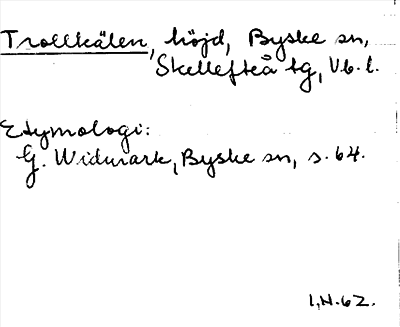 Trollkälen, höjd, Byske sn,
Skellefteå tg, Vb. l.
Etymologi:
G. Widmark, Byske sn, s. 64.
I.N. 62.